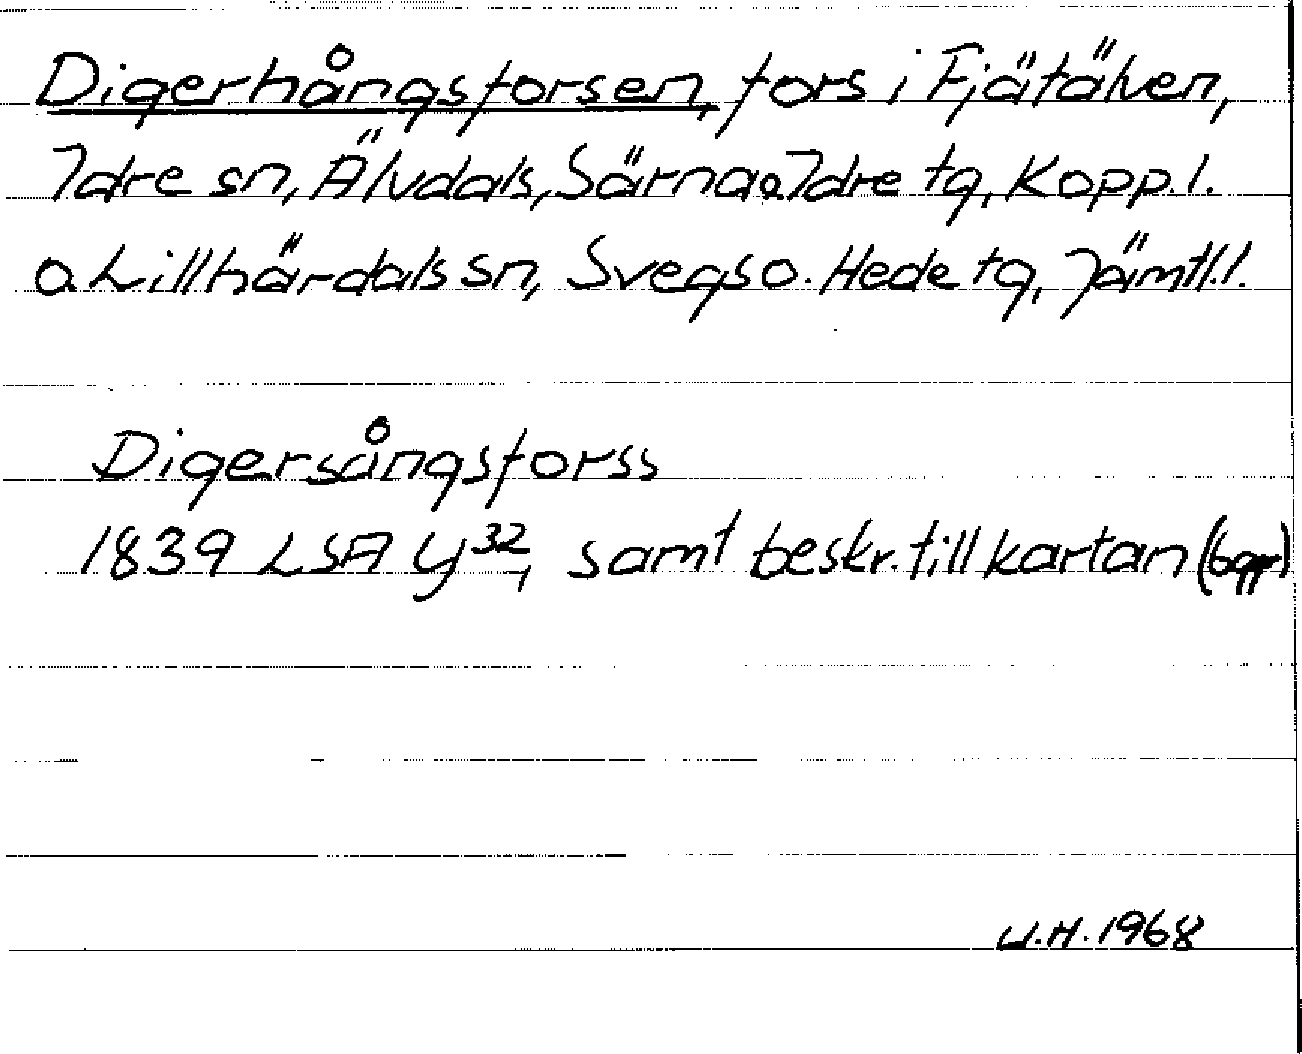 Digerhångsforsen, fors i Fjätälven,
Idre sn, Älvdals, Särna o. Idre tg, Kopp. l.
o. Lillhärdals sn, Svegs o. Hede tg, Jämtl. l.
Digersångsforss
1839 LSA Y 32/1 samt beskr. till kartan
U.H. 1968